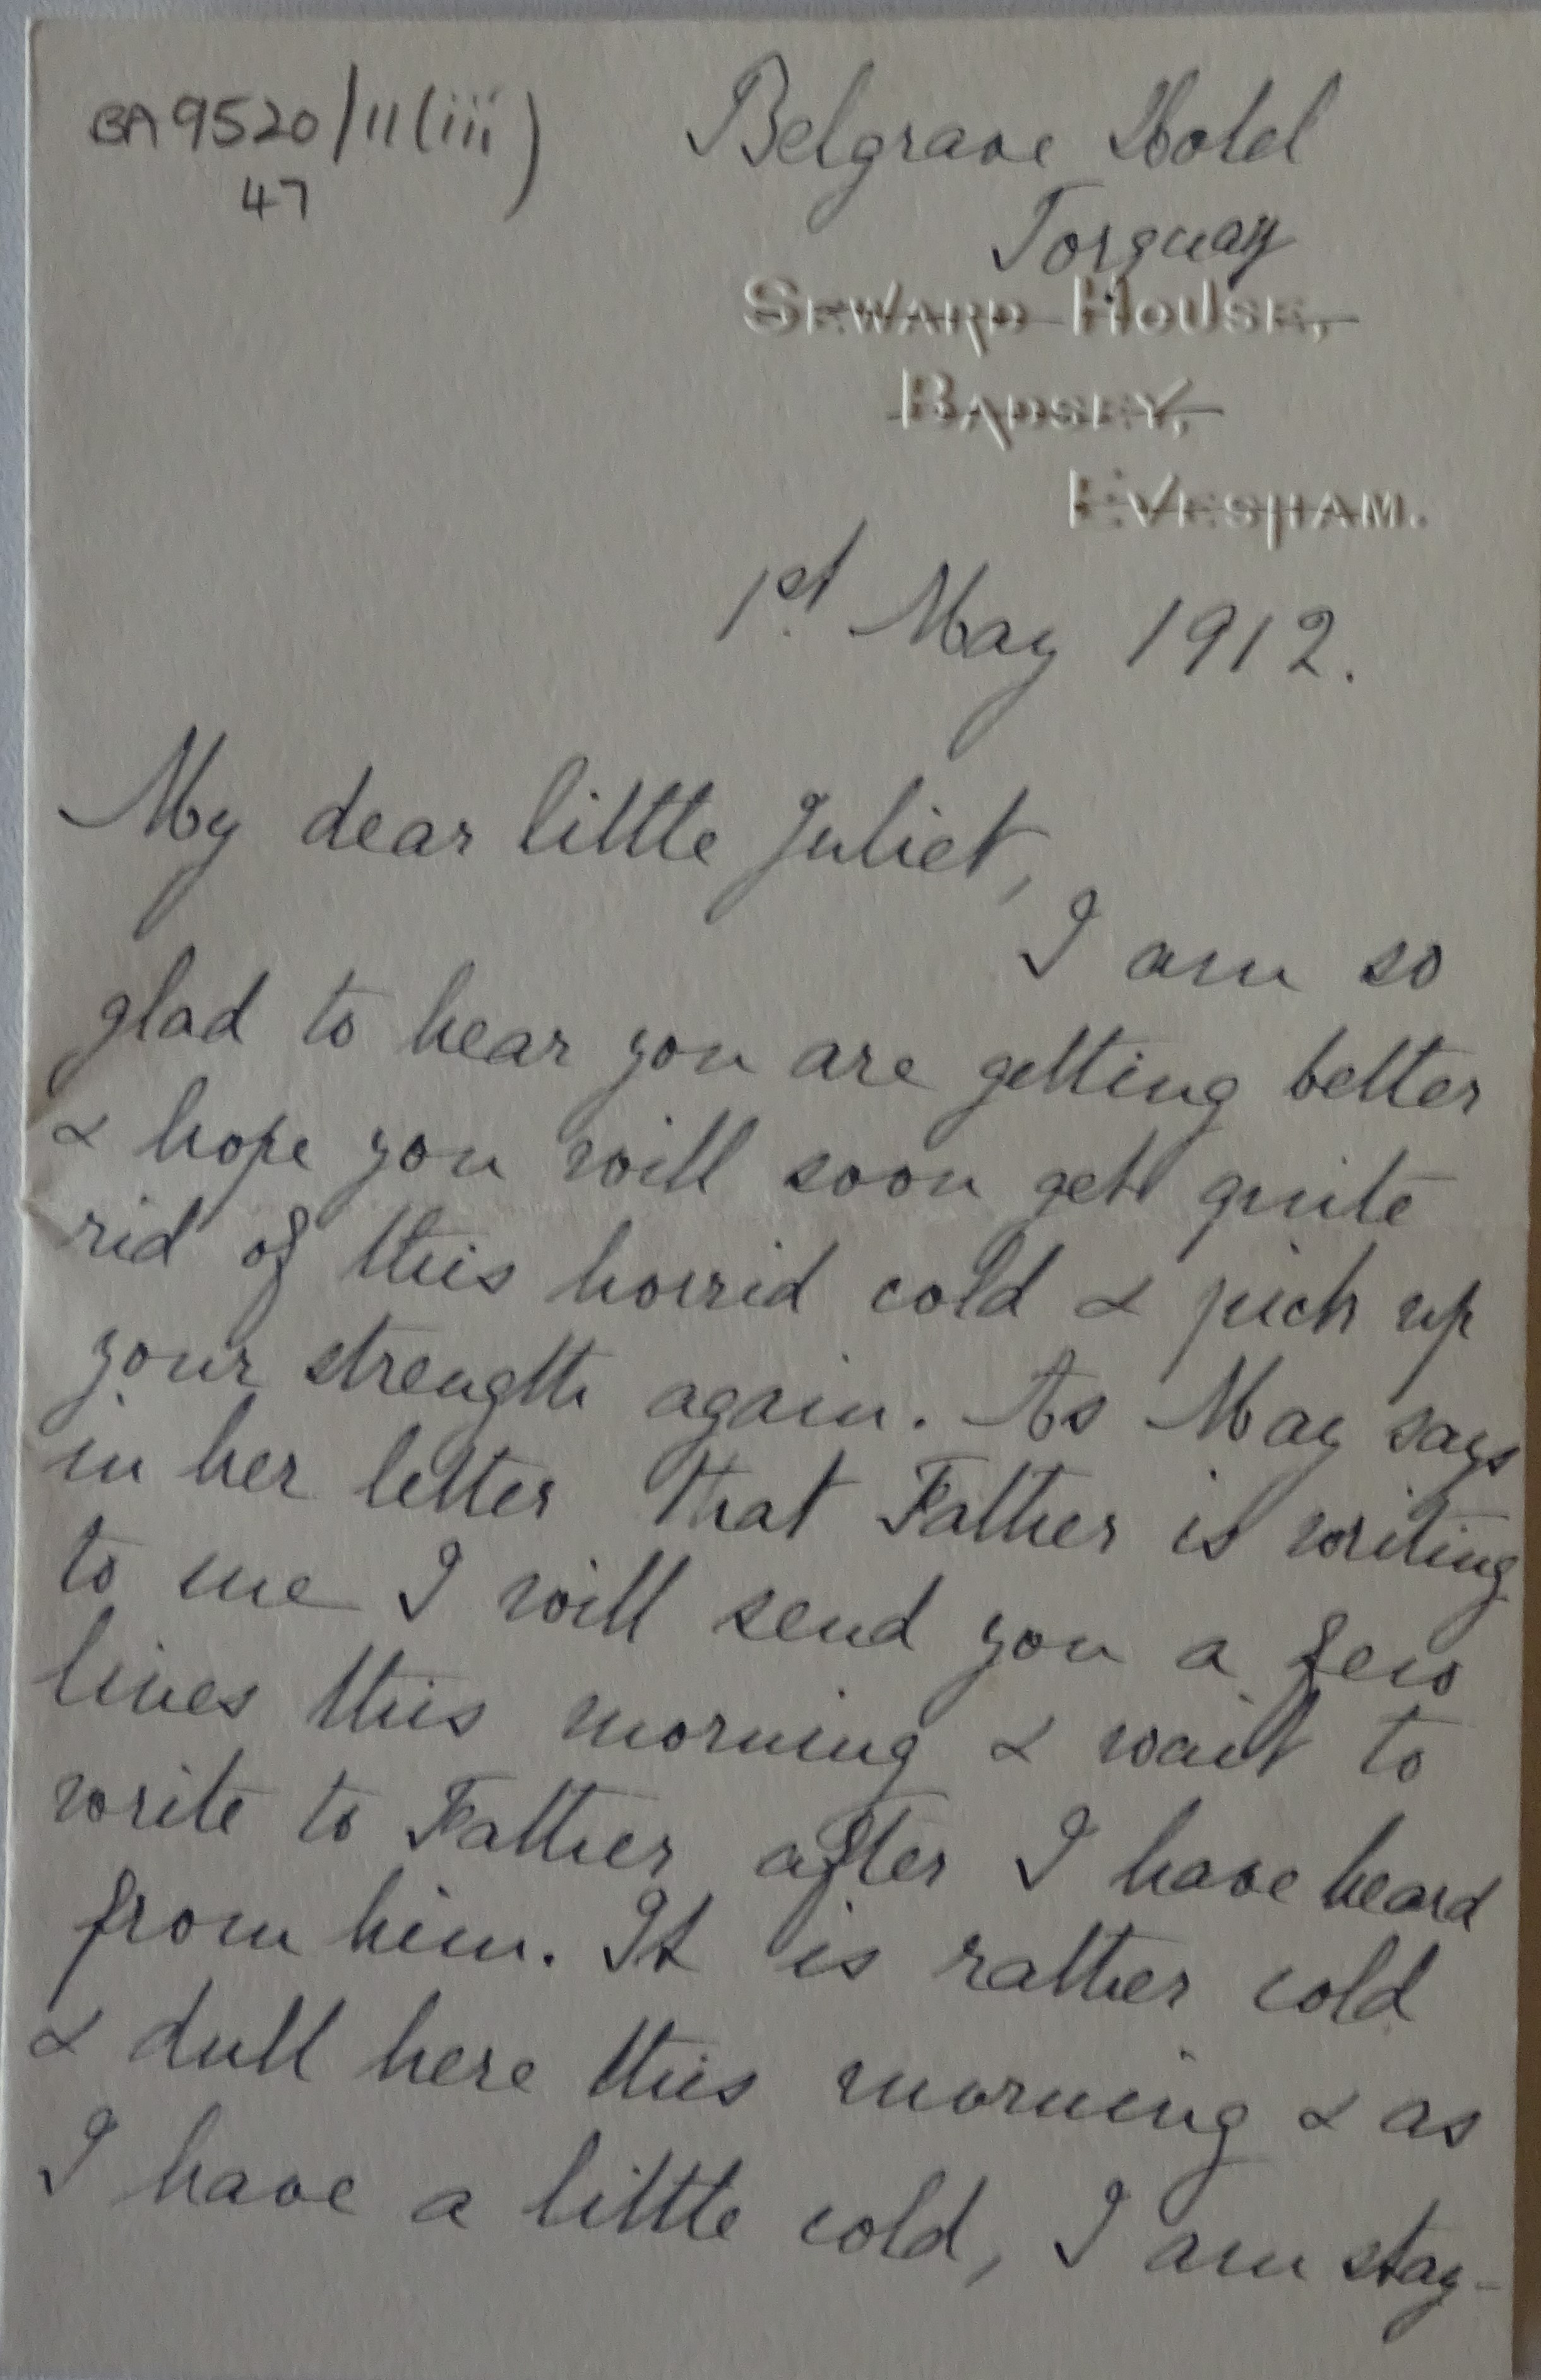 BA9520/11(iii)
47
Belgrave Hotel
Torquay
SEWARD HOUSE,
BADSEY,
EVESHAM.
1st. May 1912.
My dear little Juliet,
I am so
glad to hear you are getting better
& hope you will soon get quite
rid of this horrid cold & pick up
your strength again. As May says
in her letter that Father is writing
to me I will send you a few
lines this morning & wait to
write to Father after I have heard
from him. It is rather cold
& dull here this morning & as
I have a little cold, I am stay-